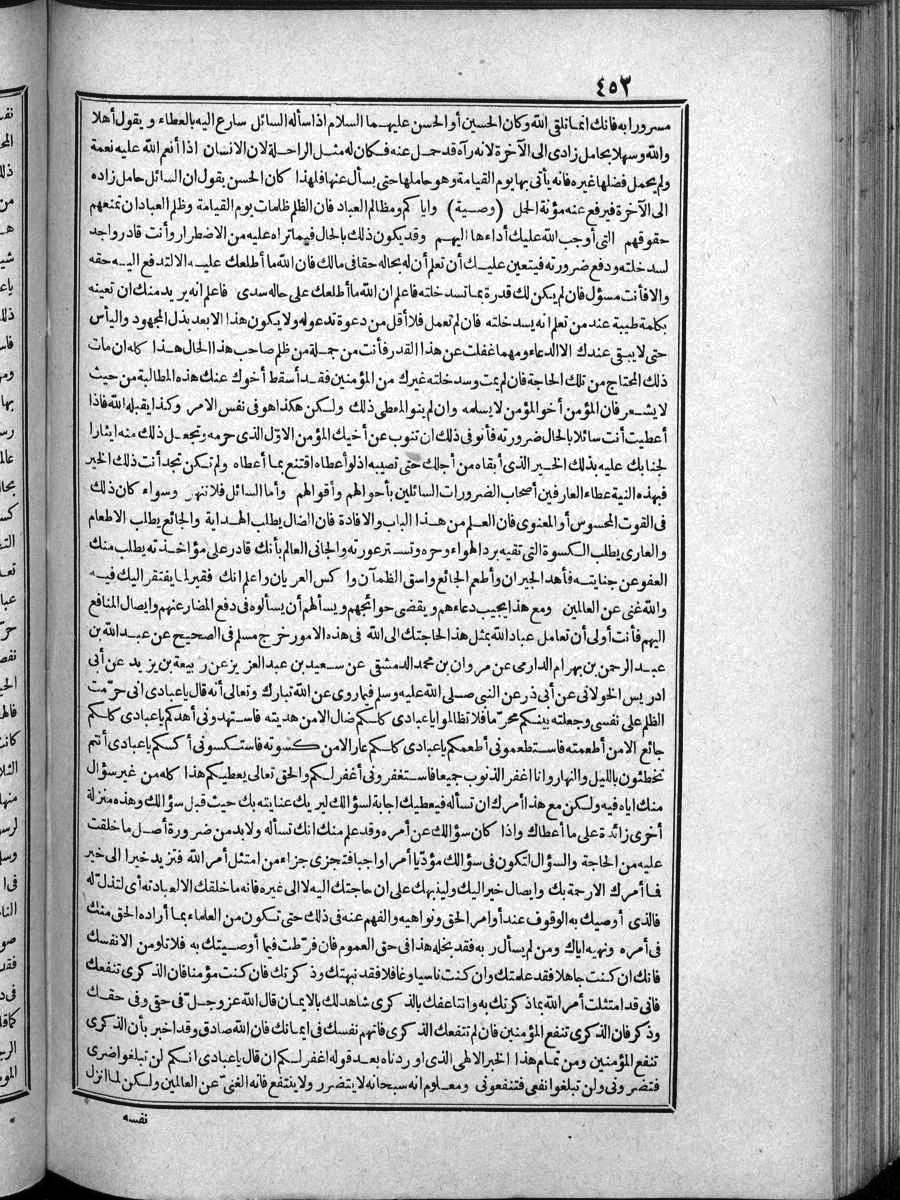 ٤٥٣
مسرورا به فانك انما تلقى الله وكان الحسين أو الحسن عليهما السلام اذا سأله السائل سارع اليه بالعطاء ويقول أهلا
والله وسهلا بحامل زادى الى الآخرة لانه رآه قد حمل عنه فكان له مثل الراحلة لان الانسان اذا أنعم الله عليه نعمة
ولم يحمل فضلها غيره فانه يأتى بها يوم القيامة وهو حاملها حتى يسأل عنها فلهذا كان الحسن يقول ان السائل حامل زاده
الى الآخرة فيرفع عنه مؤنة الحمل (وصية) واياكم ومظالم العباد فان الظلم ظلمات يوم القيامة وظلم العباد ان تمنعهم
حقوقهم التى أوجب الله عليك أداءها اليهم وقد يكون ذلك بالحال فيما تراه عليه من الاضطرار وأنت قادر واجد
لسد خلته ودفع ضرورته فيتعين عليك أن تعلم أن له بحاله حقا فى مالك فان الله ما أطلعك عليه الا لتدفع اليه حقه
والا فأنت مسؤل فان لم يكن لك قدرة بما تسد خلته فاعلم ان الله ما أطلعك على حاله سدى فاعلم انه يريد منك ان تعينه
بكلمة طيبة عند من تعلم انه يسد خلته فان لم تعمل فلا أقل من دعوة تدعو له ولا يكون هذا الا بعد بذل المجهود واليأس
حتى لا يبقى عندك الا الدعاء ومهما غفلت عن هذا القدر فأنت من جملة من ظلم صاحب هذا الحال هذا كله ان مات
ذلك المحتاج من تلك الحاجة فان لم يمت وسد خلته غيرك من المؤمنين فقد أسقط أخوك عنك هذه المطالبة من حيث
لا يشعر فان المؤمن أخو المؤمن لا يسلمه وان لم ينو المعطى ذلك ولكن هكذا هو فى نفس الامر وكذا يقبله الله فاذا
أعطيت أنت سائلا بالحال ضرورته فأنو فى ذلك ان تنوب عن أخيك المؤمن الاوّل الذى حرمه وتجعل ذلك منه ايثارا
لجنابك عليه بذلك الخير الذى أبقاه من أجلك حتى تصيبه اذ لو أعطاه اقتنع بما أعطاه ولم تكن تجد أنت ذلك الخير
فبهذه النية عطاء العارفين أصحاب الضرورات السائلين بأحوالهم وأقوالهم وأما السائل فلا تنهر وسواء كان ذلك
فى القوت المحسوس أو المعنوى فان العلم من هذا الباب والافادة فان الضال يطلب الهداية والجائع يطلب الاطعام
والعارى يطلب الكسوة التى تقيه برد الهواء وحره وتستر عورته والجانى العالم بأنك قادر على مؤاخذته يطلب منك
العفو عن جنايته فأهد الحيران وأطعم الجائع واسق الظمآن واكس العريان واعلم انك فقير لما يفتقر اليك فيه
والله غنى عن العالمين ومع هذا يجيب دعاءهم ويقضى حوائجهم ويسألهم أن يسألوه فى دفع المضار عنهم وايصال المنافع
اليهم فأنت أولى أن تعامل عباد الله بمثل هذا الحاجتك الى الله فى هذه الامور خرج مسلم فى الصحيح عن عبد الله بن
عبد الرحمن بن بهرام الدارمى عن مروان بن محمد الدمشقى عن سعيد بن عبد العزيز عن ربيعة بن يزيد عن أبى
ادريس الخولانى عن أبى ذر عن النبى صلى الله عليه وسلم فيما روى عن الله تبارك وتعالى أنه قال يا عبادى انى حرّمت
الظلم على نفسى وجعلته بينكم محرّما فلا تظالموا يا عبادى كلكم ضال الا من هديته فاستهدونى أهدكم يا عبادى كلكم
جائع الا من أطعمته فاستطعمونى أطعمكم يا عبادى كلكم عار الا من كسوته فاستكسونى أكسكم يا عبادى أنتم
تخطئون بالليل والنهار وانا اغفر الذنوب جميعا فاستغفرونى أغفر لكم والحق تعالى يعطيكم هذا كله من غير سؤال
منك اياه فيه ولكن مع هذا أمرك ان تسأله فيعطيك اجابة لسؤالك ليريك عنايته بك حيث قبل سؤالك وهذه منزلة
أخرى زائدة على ما أعطاك واذا كان سؤالك عن أمره وقد علم منك انك تسأله ولا بد من ضرورة أصل ما خلقت
عليه من الحاجة والسؤال لتكون فى سؤالك مؤدّيا أمرا واجبا فتجزى جزاء من امتثل أمر الله فتزيد خيرا الى خير
فما أمرك الا رحمة بك وايصال خير اليك ولينبهك على ان حاجتك اليه لا الى غيره فانه ما خلقك الا لعبادته أى لتذل له
فالذى أوصيك به الوقوف عند أوامر الحق ونواهيه والفهم عنه فى ذلك حتى تكون من العلماء بما أراده الحق منك
فى أمره ونهيه اياك ومن لم يسأل ربه فقد بخله هذا فى حق العموم فان فرّطت فيما أوصيتك به فلا تلومن الا نفسك
فانك ان كنت جاهلا فقد علمتك وان كنت ناسيا وغافلا فقد نبهتك وذكرتك فان كنت مؤمنا فان الذكرى تنفعك
فانى قد امتثلت أمر الله بما ذكرتك به وانتفاعك بالذكرى شاهد لك بالايمان قال الله عز وجلّ فى حقى وفى حقك
وذكر فان الذكرى تنفع المؤمنين فان لم تنفعك الذكرى فاتهم نفسك فى ايمانك فان الله صادق وقد اخبر بأن الذكرى
تنفع المؤمنين ومن تمام هذا الخبر الالهى الذى اوردناه بعد قوله اغفر لكم ان قال يا عبادى انكم لن تبلغوا ضرى
فتضرونى ولن تبلغوا نفعى فتنفعونى ومعلوم انه سبحانه لا يتضرر ولا ينتفع فانه الغنىّ عن العالمين ولكن لما انزل
نفسه